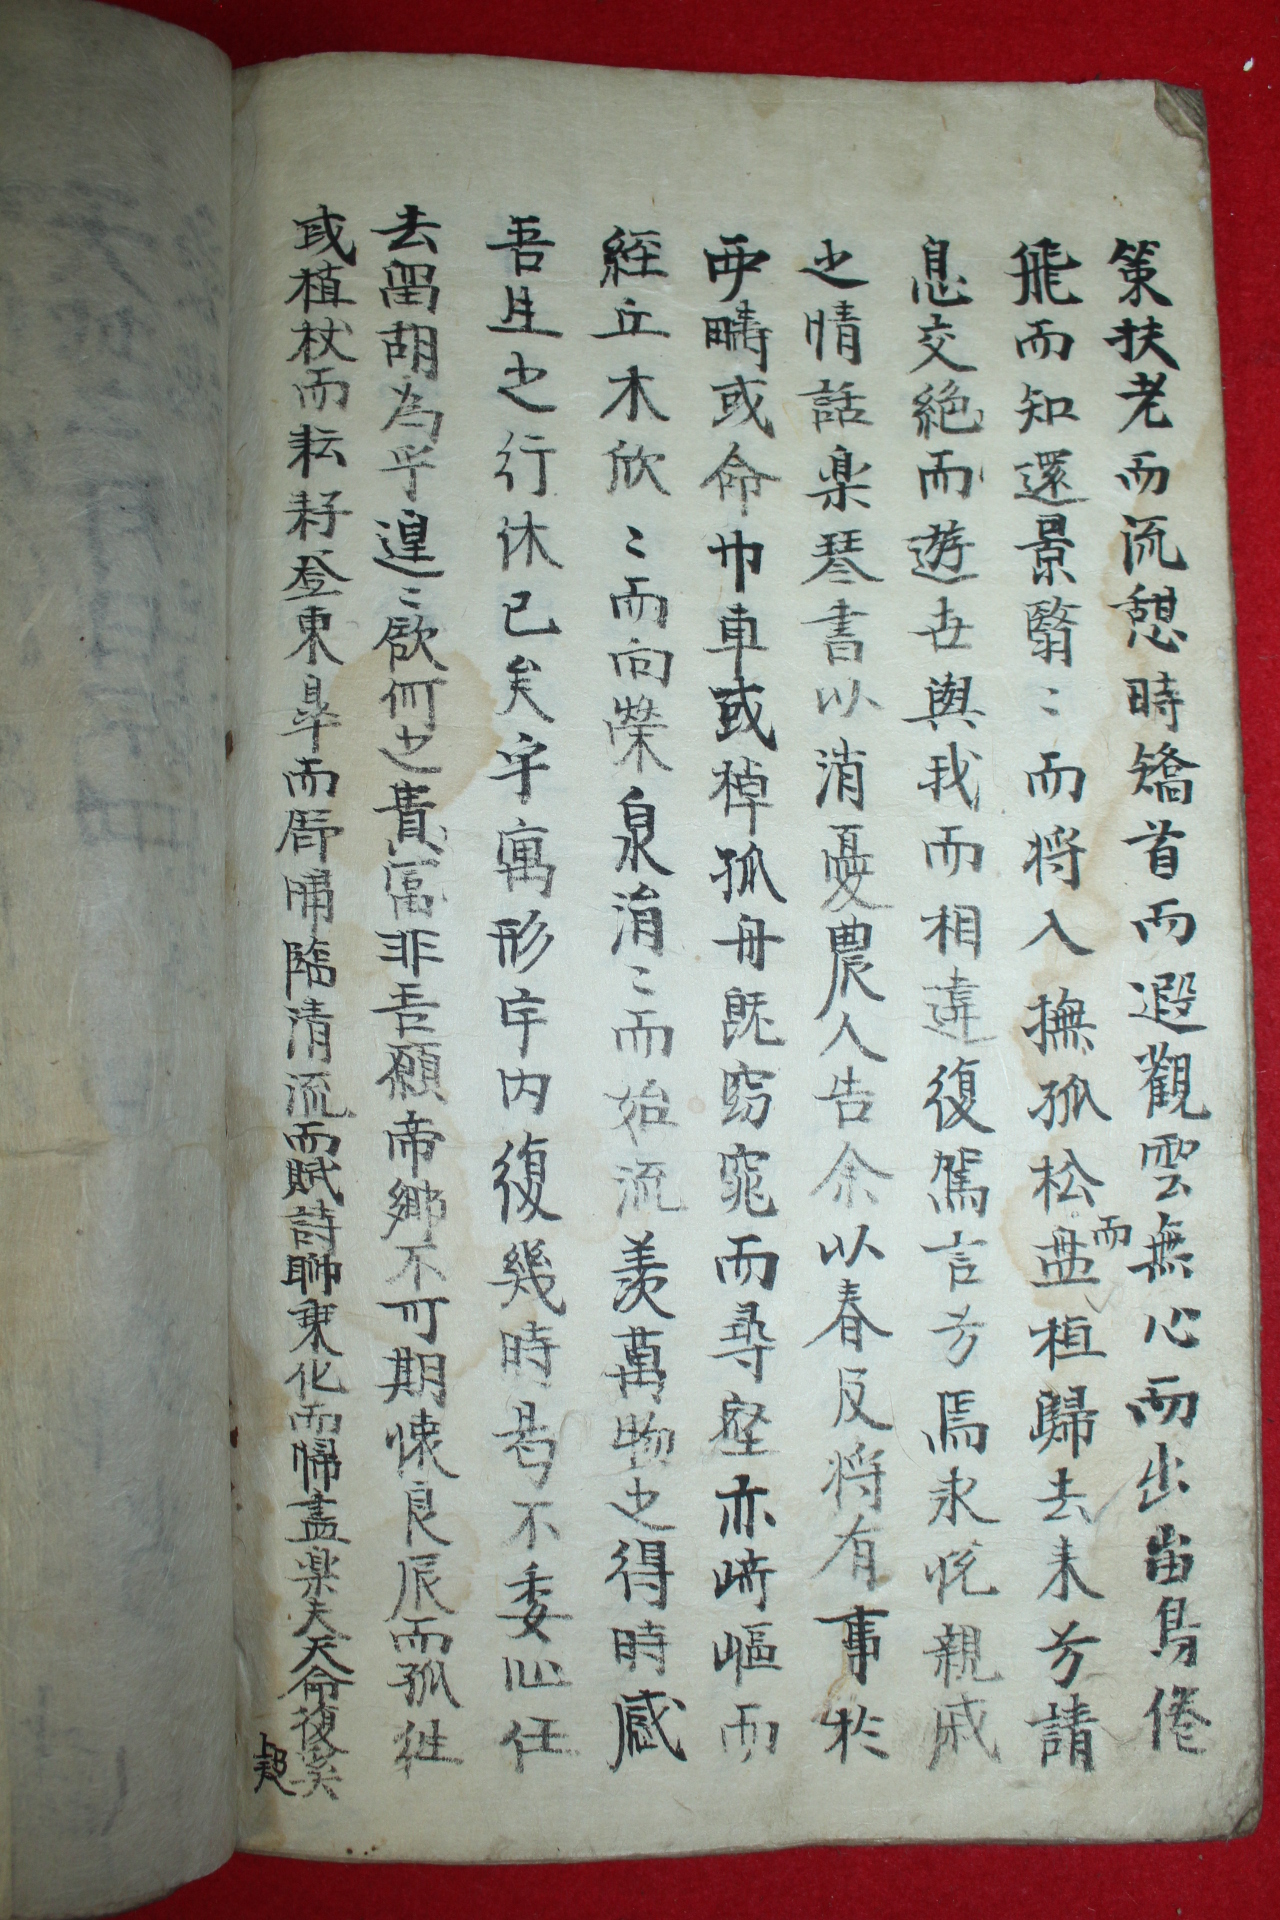 策扶老而流憩時矯首而遐觀雲無心而出岫鳥倦
飛而知還景翳〻而將入撫孤松而盤桓歸去来兮請
息交絶而遊世與我而相違復駕言兮焉求悅親戚
之情話楽琴書以消憂農人告余以春及将有事於
西疇或命巾車或棹孤舟既窈窕而尋壑亦崎嶇而
經丘木欣〻而向榮泉涓〻而始流羡萬物之得時感
吾生之行休已矣乎寓形宇内復幾時曷不委心任
去留胡為乎遑〻欲何之貴冨非吾願帝鄉不可期懐良辰而孤徃
或植杖而耘耔登東皐而舒嘯臨清流而賦詩聊乗化而帰盡楽夫天命復奚
疑